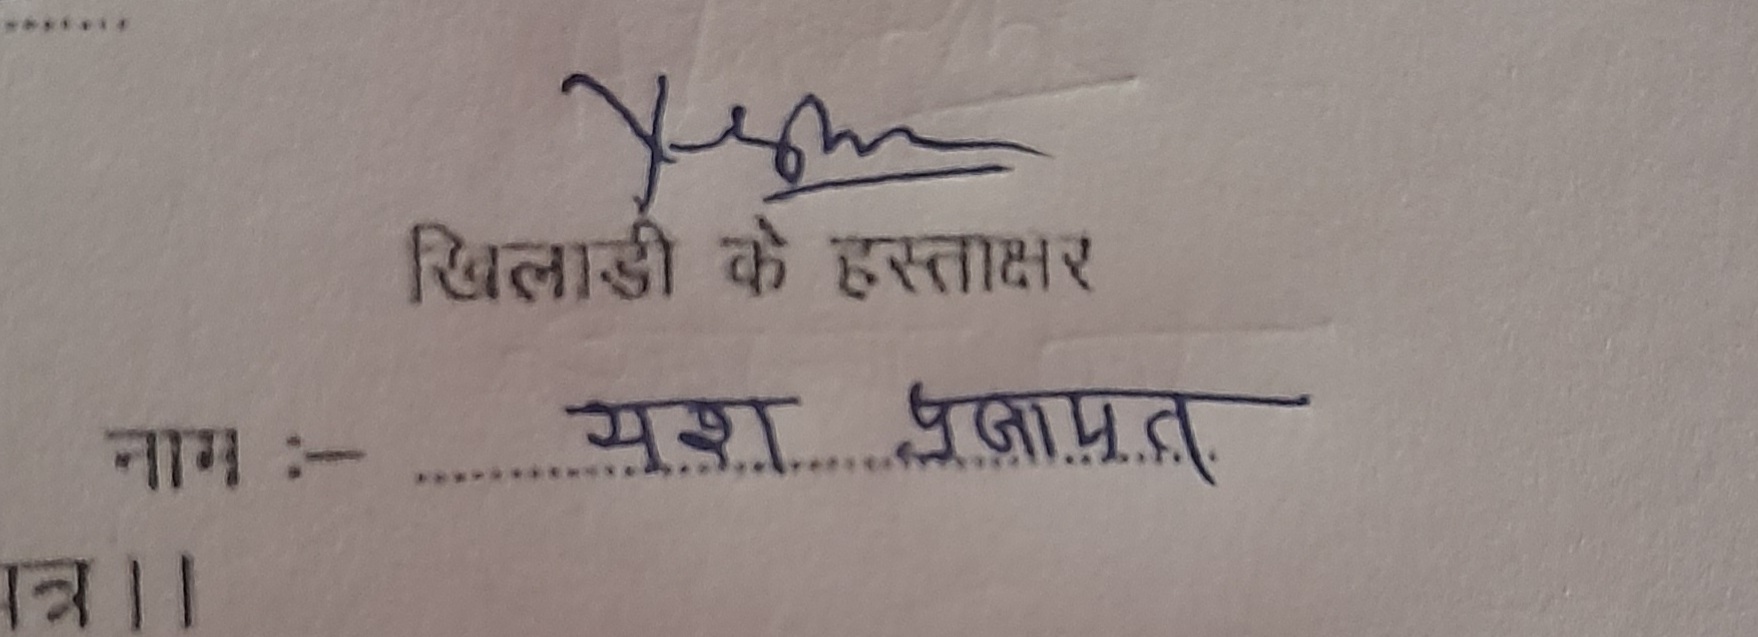 Yash
खिलाडी के हस्ताक्षर
नाम :- यश प्रजापत
पत्र ।।